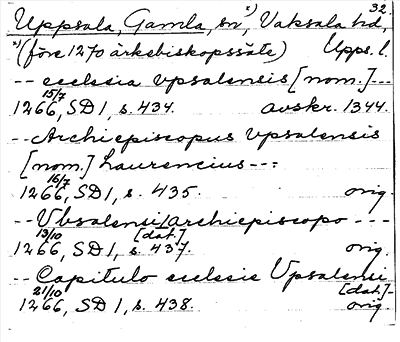 32.
Uppsala, Gamla, sn, x) Vaksala hd,
x) (före 1270 ärkebiskopssäte) Upps. l.
-- ecclesia vpsalensis [nom.] ---
15/7
1266, SD 1, s. 434. avskr. 1344.
-- Archiepiscopus vpsalensis
[nom.] Laurencius ---
16/7
1266, SD 1, s. 435. orig.
-- Vbsalensi archiepiscopo ---
13/10 [dat.]
1266, SD 1, s. 437. orig.
-- Capitulo ecclesie Vpsalensi
21/10 [dat.] -
1266, SD 1, s. 438. orig.